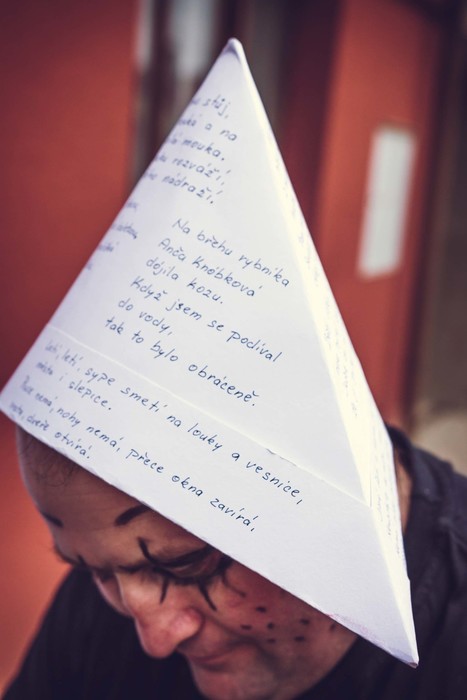 stůj,
a na
mouka.
rozváží,
nádraží!
Na břehu rybníka
Anča Knobková
dojila kozu.
Když jsem se podíval
do vody,
tak to bylo obráceně.
letí, letí, sype smetí na louky a vesnice,
města i slepice.
Ruce nemá, nohy nemá, přece okna zavírá,
dveře otvírá.